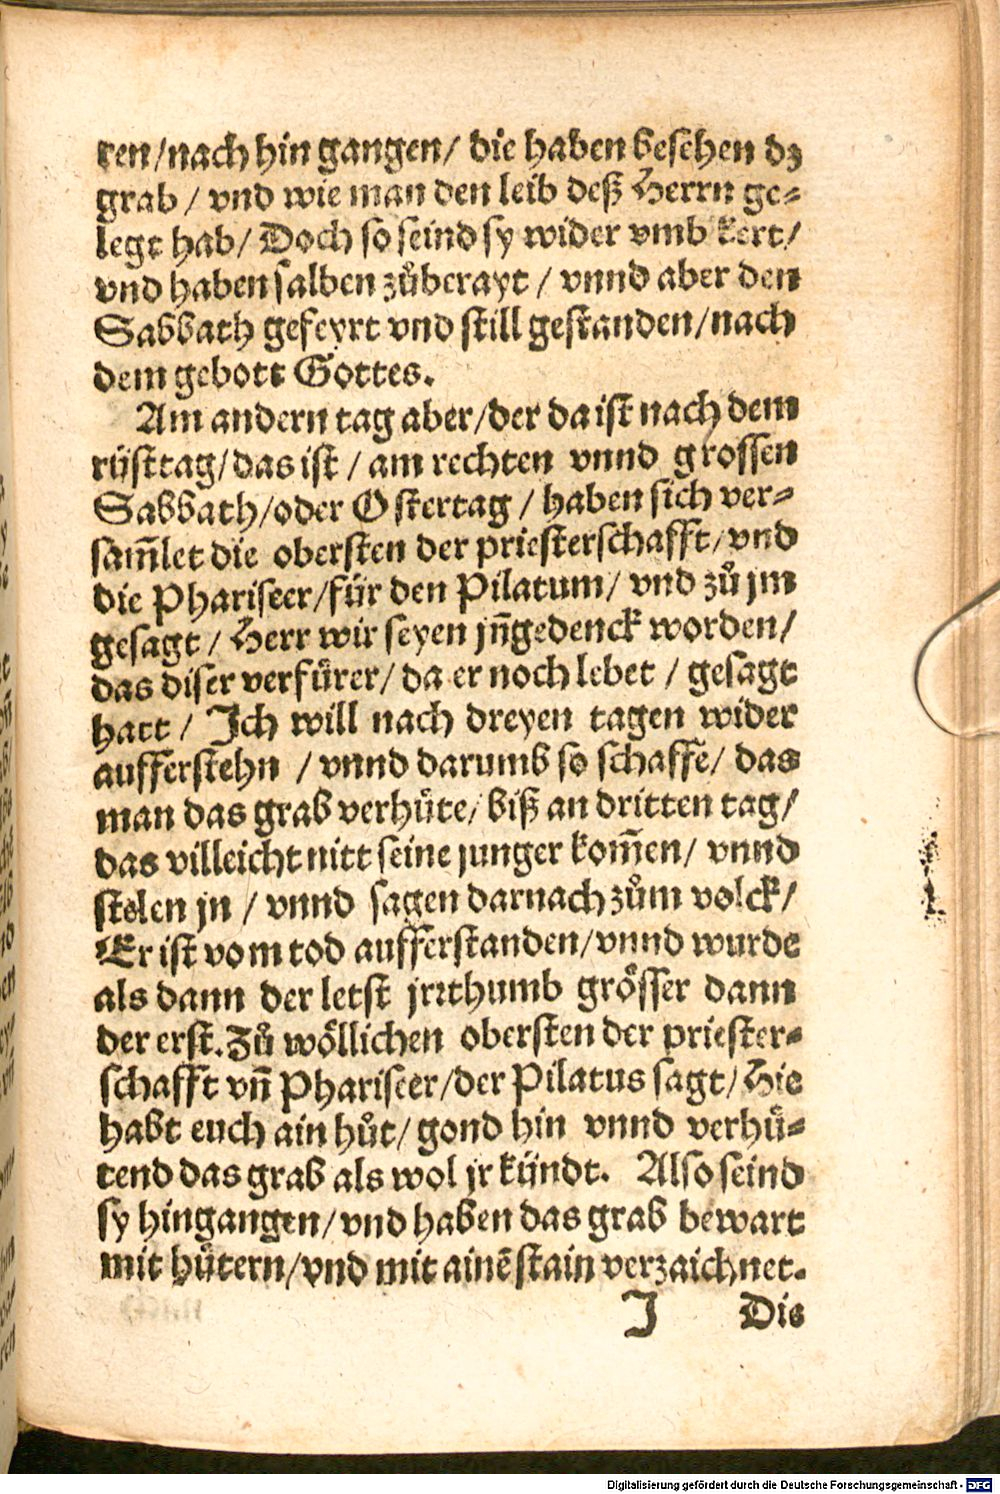 ren/nach hin gangen/ die haben besehen dz
grab / vnd wie man den leib deß Herrn ge-
legt hab/ Doch so seind sy wider vmb kert/
vnd haben salben zůberayt / vnnd aber den
Sabbath gefeyrt vnd still gestanden/nach
dem gebott Gottes.
Am andern tag aber/der da ist nach dem
rüsttag/das ist / am rechten vnnd grossen
Sabbath/oder Ostertag / haben sich ver-
sam̄let die obersten der priesterschafft/vnd
die Phariseer/für den Pilatum/ vnd zů jm
gesagt / Herr wir seyen jn̄gedenck worden/
das diser verfürer/ da er noch lebet / gesagt
hatt / Ich will nach dreyen tagen wider
aufferstehn / vnnd darumb so schaffe/ das
man das grab verhuͤte/ biß an dritten tag/
das villeicht nitt seine junger kom̄en/ vnnd
stelen jn / vnnd sagen darnach zům volck/
Er ist vom tod aufferstanden/vnnd wurde
als dann der letst jrrthumb groͤsser dann
der erst. Zů woͤllichen obersten der priester-
schafft vn̄ Phariseer/der Pilatus sagt/ Hie
habt euch ain hůt/ gond hin vnnd verhuͤ-
tend das grab als wol jr kündt. Also seind
sy hingangen/vnd haben das grab bewart
mit huͤtern/vnd mit ainē stain verzaichnet.
I Dis
Digitalisierung gefördert durch die Deutsche Forschungsgemeinschaft - DFG